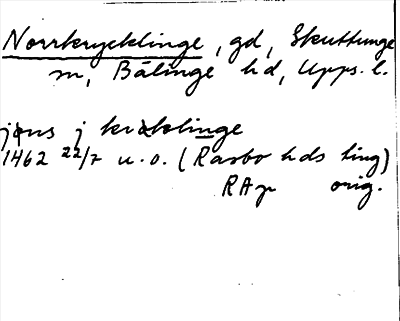 Norrkrycklinge, gd, Skuttunge
sn, Bälinge hd, Upps. l.
jøns j krøklinge
1462 22/7 u.o. (Rasbo hds ting)
RAp orig.